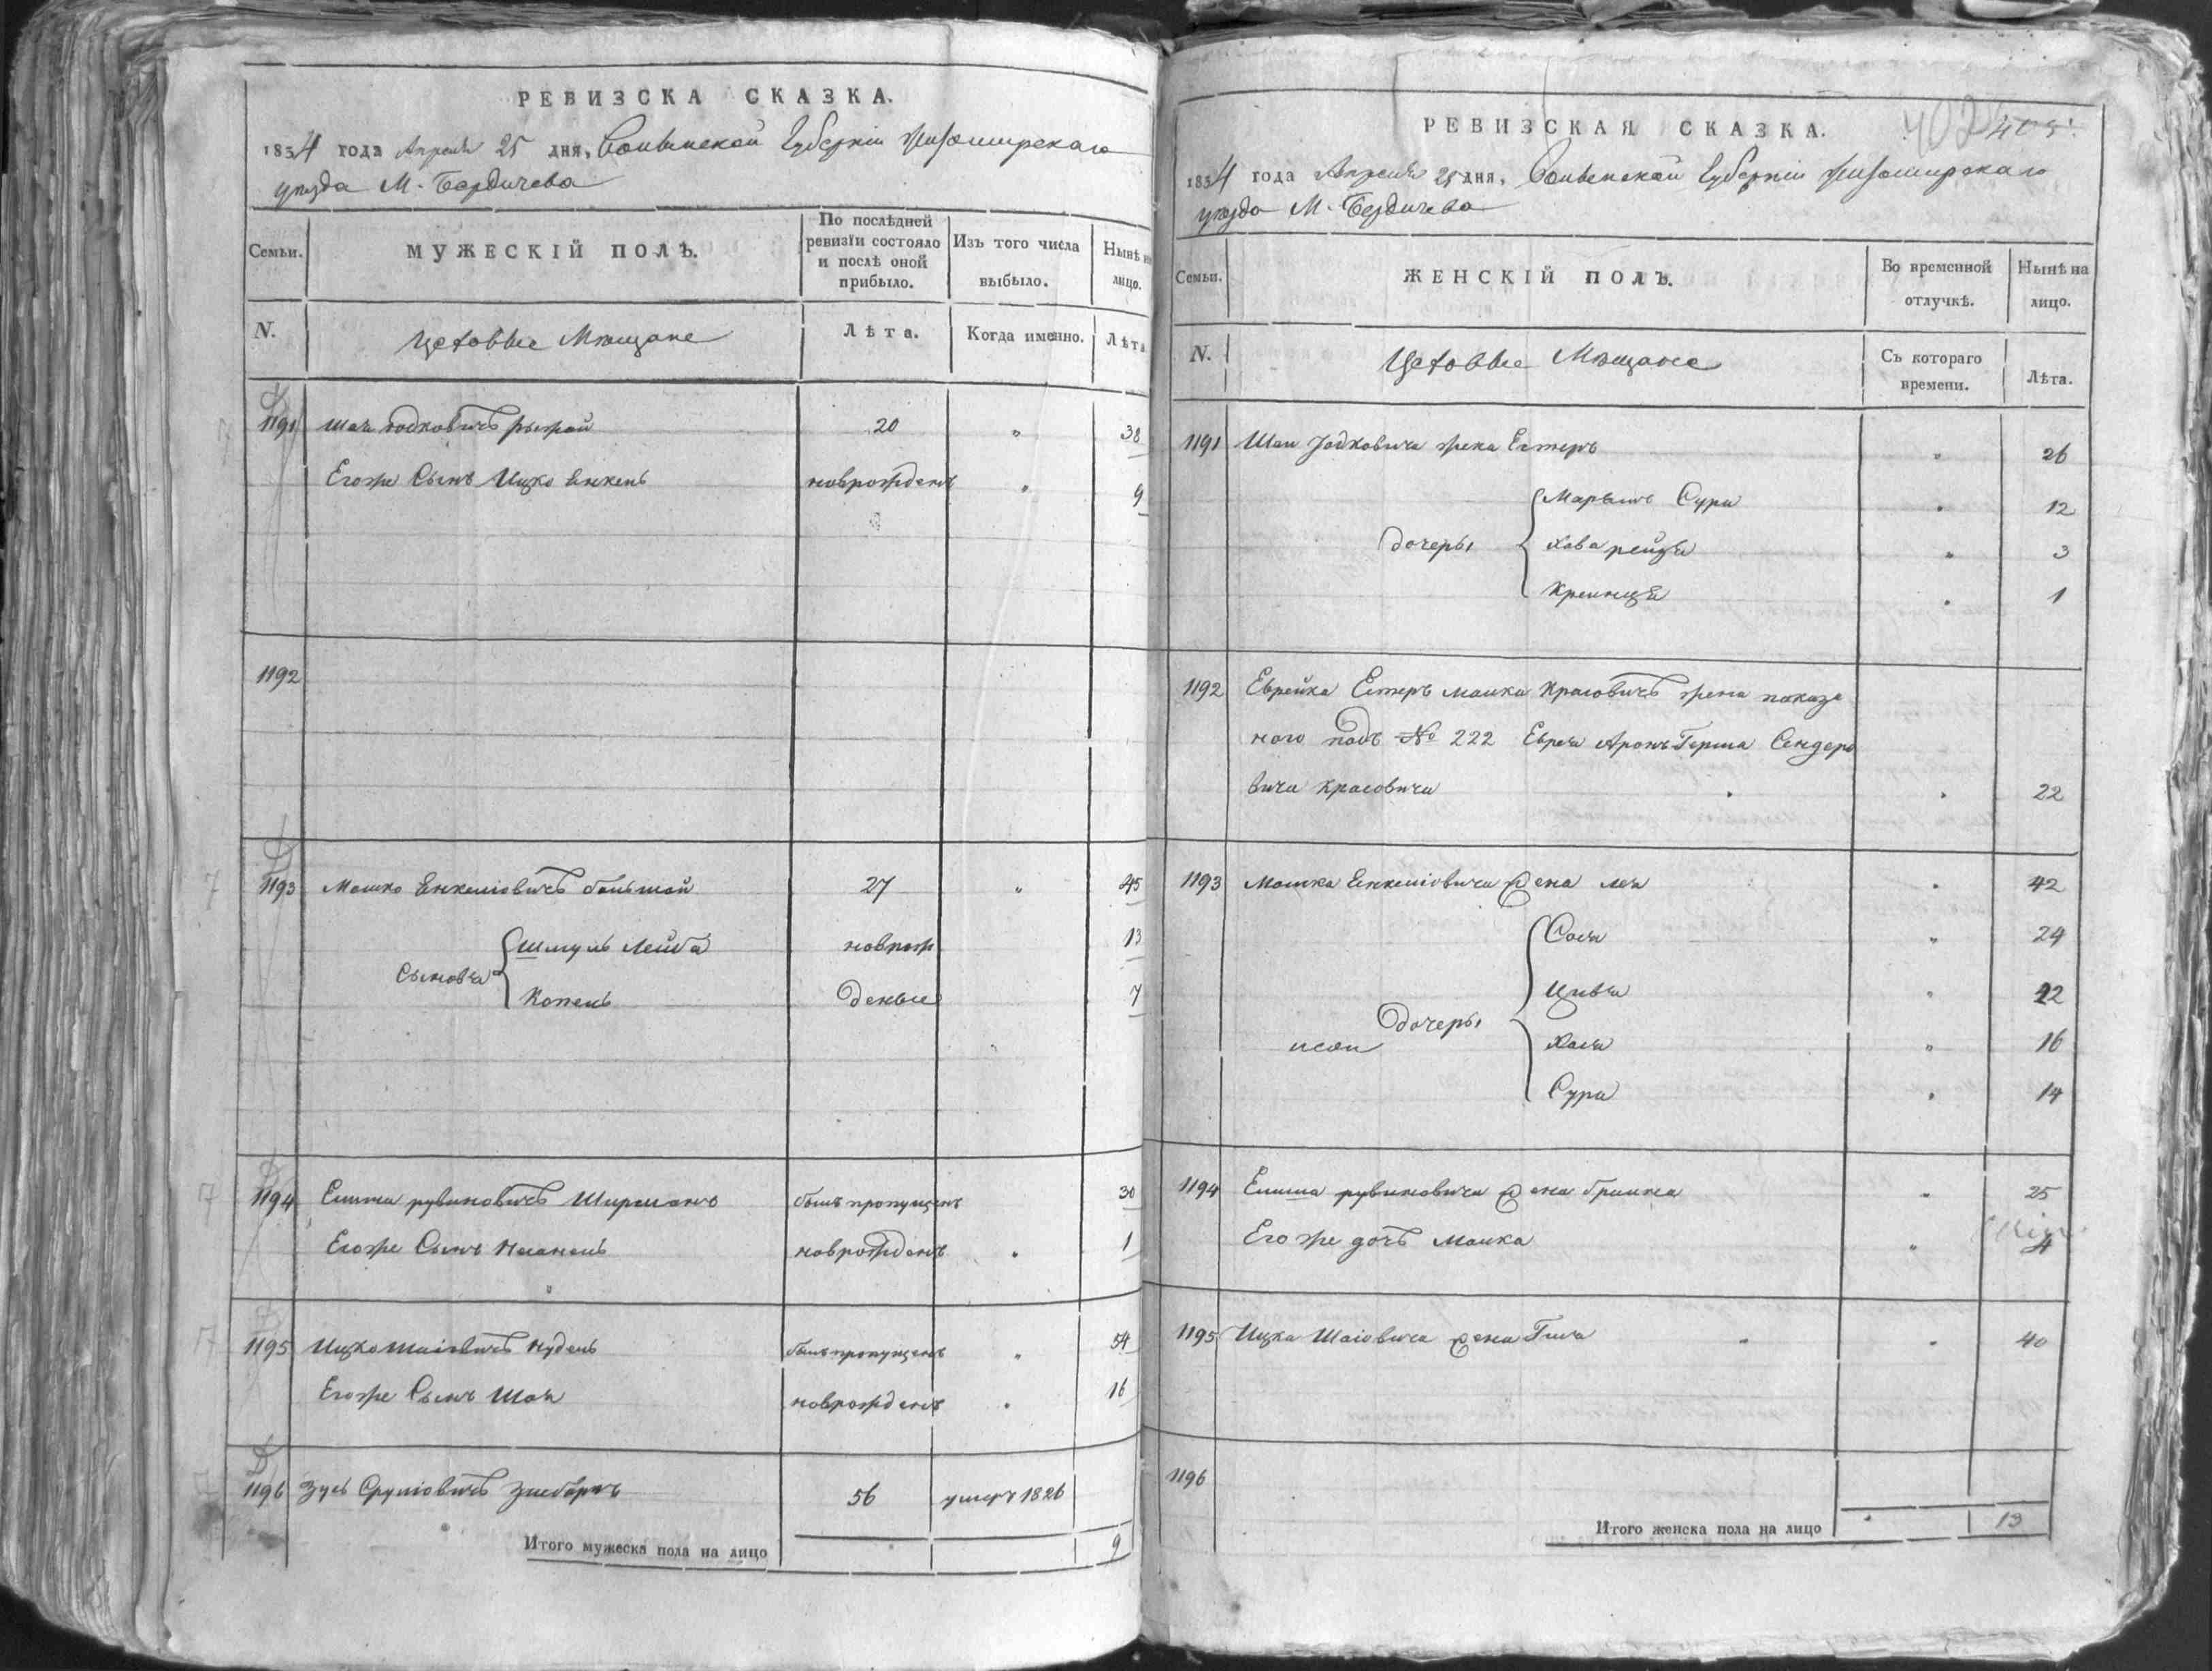 РЕВИЗСКА СКАЗКА.
1834 года Апреля 25 дня, Волынской Губерніи Житомирскаго
уѣзда М. Бердичева
Семьи.
МУЖЕСКІЙ ПОЛЪ.
По послѣдней
ревизіи состояло
и послѣ оной
прибыло.
Изъ того числа
выбыло.
Нынѣ на
лицо.
N.
Цеховые Мѣщане
Лѣта.
Когда именно.
Лѣта
1191 Шая Іодковичъ рыжой 20 " 38
Егоже Сынъ Ицко Енкель новрожденъ " 9
1192
1193 Мошко Енкеліовичъ большой 27 " 45
Шмуль Лейба новрож 13
Сыновья
Копель деные 7
1194 Елиша рувиновичъ Ширманъ былъ пропущенъ 30
Егоже Сынъ новрожденъ " 1
1195 Ицко Шаіовичъ Нудель былъ пропущенъ " 54
Егоже Сынъ Шая новрожденъ " 16
1196 Зусь Сруліовичъ 56 умеръ 1826
Итого мужеска пола на лицо 9
402 405
РЕВИЗСКАЯ СКАЗКА.
1834 года Апреля 25 дня, Волынской Губерніи Житомирскаго
уѣзда М. Бердичева
Семьи.
ЖЕНСКІЙ ПОЛЪ.
Во временной
отлучкѣ.
Нынѣ на
лицо.
N.
Цеховые Мѣщане
Съ котораго
времени.
Лѣта.
1191 Шаи Іодковича жена Естеръ " 26
Марьямъ Сура " 12
Дочеры
Хава рейзя " 3
Креинця " 1
1192 Еврейка Естеръ малка Красовичъ жена показа
ного подъ № 222 Еврея Аронъ Герша Сендеро
вича Красовича " " 22
1193 Мошка Енкеліовича жена лея " 42
Сося " 24
Цивья " 22
Дочеры
Хася " 16
Сура " 14
1194 Елиша рувиновича жена " 25
Егоже дочь малка " 4
1195 Ицка Шаіовича жена Гитя " " 40
1196
Итого женска пола на лицо " 13